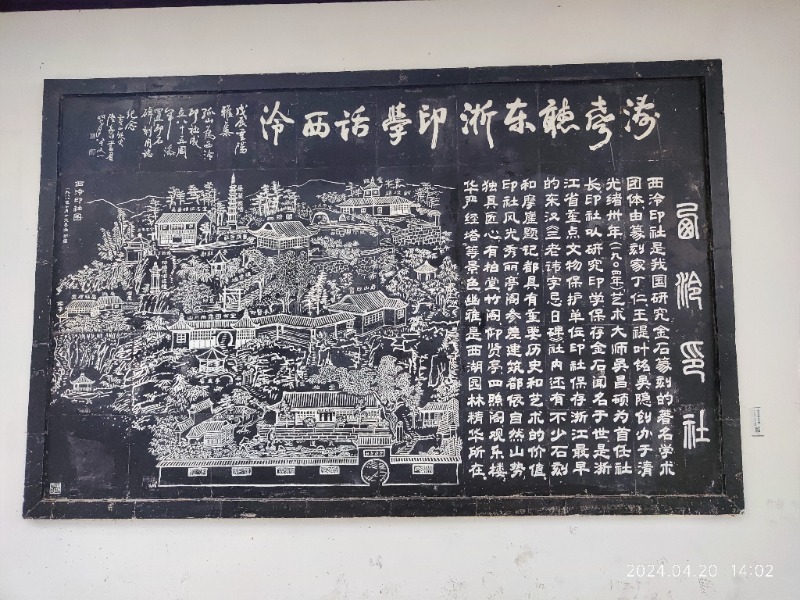 涛声聽东浙印學话西泠
西泠印社
西泠印社是我国研究金石篆刻的著名学术
团体由篆刻家丁仁王禔叶铭吴隐创办于清
光绪卅年(一九〇四年)艺术大师吴昌硕为首任社
长印社以研究印学保存金石闻名于世是浙
江省重点文物保护单位印社保存浙江最早
的东汉《三老讳字忌日碑》社内还有不少石刻
和摩崖题记都具有重要历史和艺术的价值
印社风光秀丽亭阁参差建筑都依自然山势
独具匠心有柏堂竹阁仰贤亭四照阁观乐楼
华严经塔等景色幽雅是西湖园林精华所在
戊辰重陽
雅集
孤山为西泠
印社成
立八十五周
碑刻用誌
纪念
西泠印社图
2024.04.20 14:02